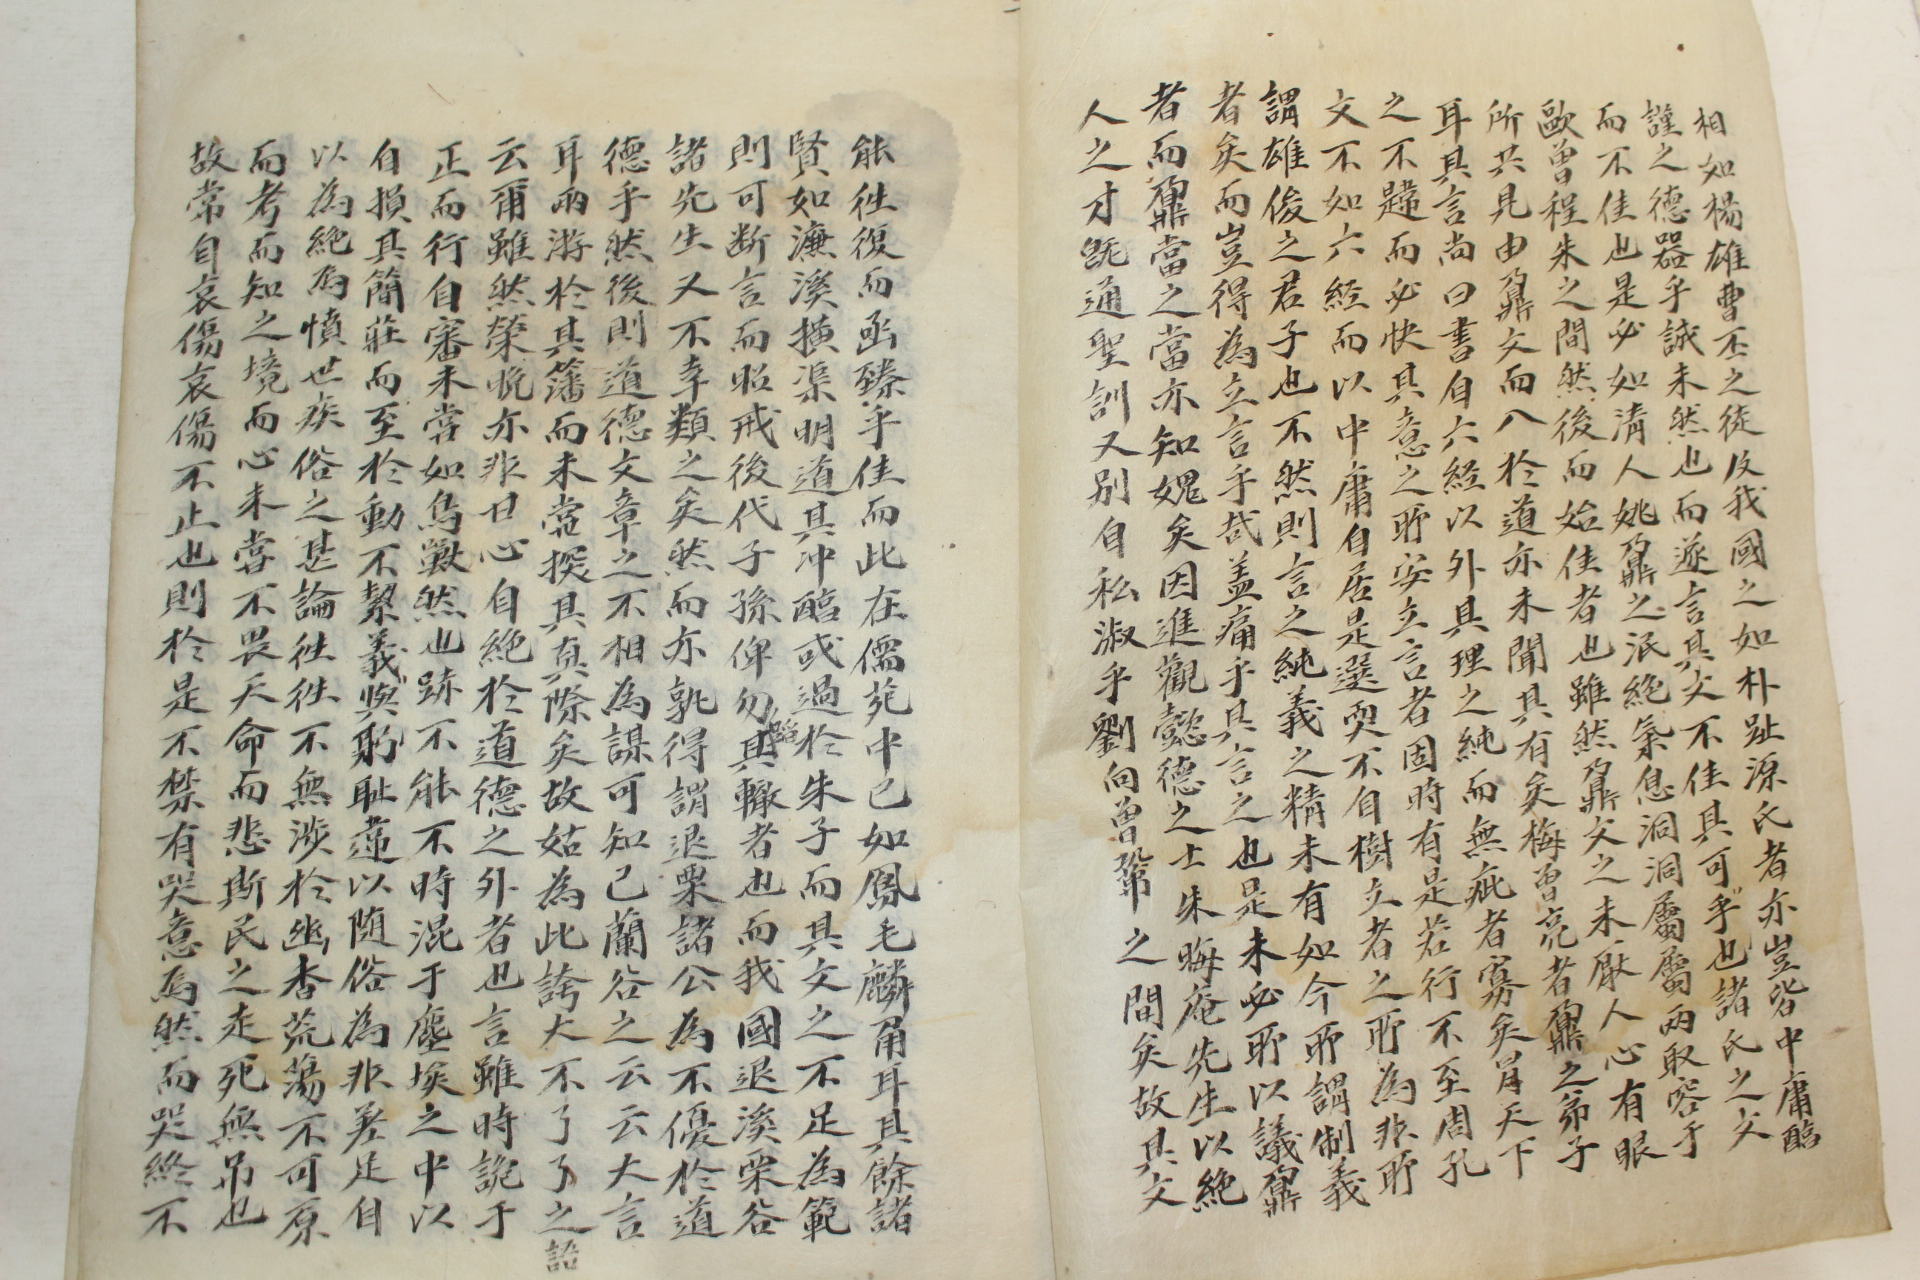 相如楊雄曹丕之徒及我國之如朴趾源氏者亦豈皆中庸臨
謹之德器乎誠未然也而遂言其文不佳其可乎也諸氏之文
而不佳也是必如清人姚鼐之泯絶氣息洞洞屬屬両取容于
歐曾程朱之間然後而始佳者也雖然鼐文之未厭人心有眼
所共見由鼐文而入於道亦未聞其有矣梅曾亮者鼐之弟子
耳其言尚曰書自六經以外其理之純而無疵者寡矣肖天下
之不韙而必快其意之所安立言者固時有是若行不至周孔
文不如六經而以中庸自居是選耎不自樹立者之所為非所
謂雄俊之君子也不然則言之純義之精未有如今所謂制義
者矣而豈得為立言乎哉盖痛乎其言之也是未必所以議鼐
者而鼐當之當亦知媿矣因進觀懿德之士朱晦庵先生以絶
人之才旣通聖訓又別自私淑乎劉向曾鞏之間矣故其文
能徃復而函臻乎佳而此在儒苑中已如鳳毛麟角耳其餘諸
賢如濂溪横渠明道其冲臨或過於朱子而其文之不足為範
則可断言而昭戒後代子孫俾勿蹈其轍者也而我國退溪栗谷
諸先生又不幸類之矣然而亦孰得謂退栗諸公為不優於道
德乎然後則道德文章之不相為謀可知已蘭谷之云云大言
耳両游於其籓而未常探其真際矣故姑為此誇大不了了之語
云爾雖然榮晩亦非甘心自絶於道德之外者也言雖時詭于
正而行自審未甞如鳥獸然也跡不能不時混于塵埃之中以
自損其簡莊而至於動不絜義與躬耻違以随俗為非差足自
以為絶為憤世疾俗之甚論徃徃不無渉於幽杳荒蕩不可原
而考而知之境而心未甞不畏天命而悲斯民之走死無吊也
故常自哀傷哀傷不止也則於是不禁有哭意焉然而哭終不